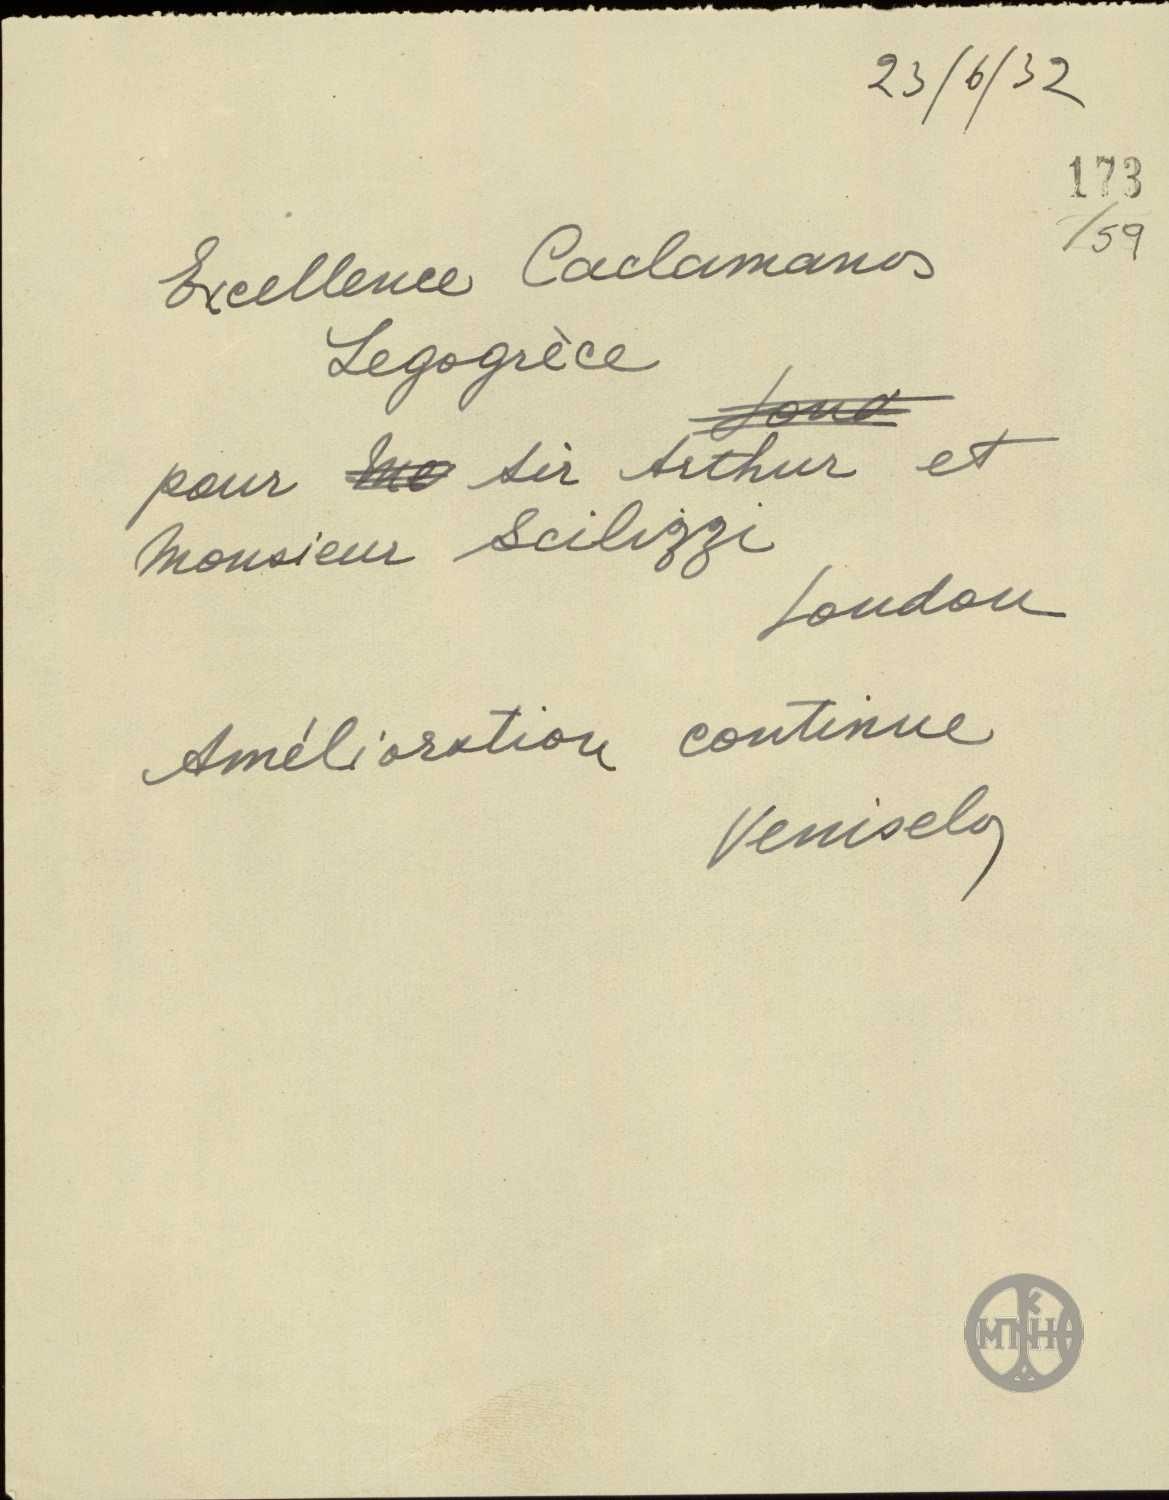 23/6/32
173
/59
Excellence Caclamanos
Legogrèce
Lond
pour Mo Sir Arthur et
Monsieur Scilizzi
London
Amélioration continue
Veniselos
ΜΠΚΗΑ